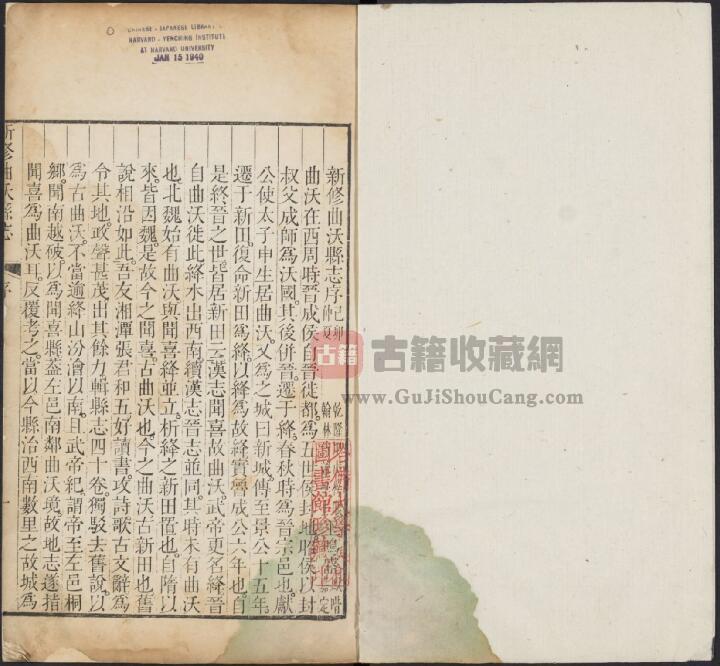 CHINESE - JAPANESE LIBRARY
HARVARD - YENCHING INSTITUTE
AT HARVARD UNIVERSITY
JAN 15 1940
新修曲沃縣志序
曲沃在西周時晉成侯自晉徙都為五世侯封地昭侯以封
叔父成師為沃國其後併晉遷于絳春秋時為晉宗邑也獻
公使太子申生居曲沃又為之城曰新城傳至景公十五年
遷于新田復命新田為絳以絳為故絳實魯成公六年也自
是終晉之世皆居新田云漢志聞喜故曲沃武帝更名絳晉
自曲沃徙此絳水出西南續漢志晉志並同其時未有曲沃
也北魏始有曲沃與聞喜絳並立析絳之新田置也自隋以
來皆因魏是故今之聞喜古曲沃也今之曲沃古新田也舊
說相沿如此吾友湘潭張君和五好讀書攻詩歌古文辭為
令其地政聲甚茂出其餘力輯縣志四十卷獨駁去舊說以
為古曲沃不當逾絳山汾澮以南且武帝紀謂帝至左邑桐
鄉聞南越破以為聞喜縣蓋左邑南鄰曲沃境故地志遂指
聞喜為曲沃耳反覆考之當以今縣治西南數里之故城為
新修曲沃縣志
序
一
古籍
古籍收藏網
www.GuJiShouCang.com